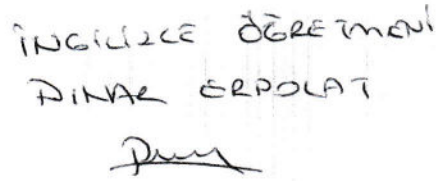 İNGİLİZCE ÖĞRETMENİ
PINAR ERPOLAT